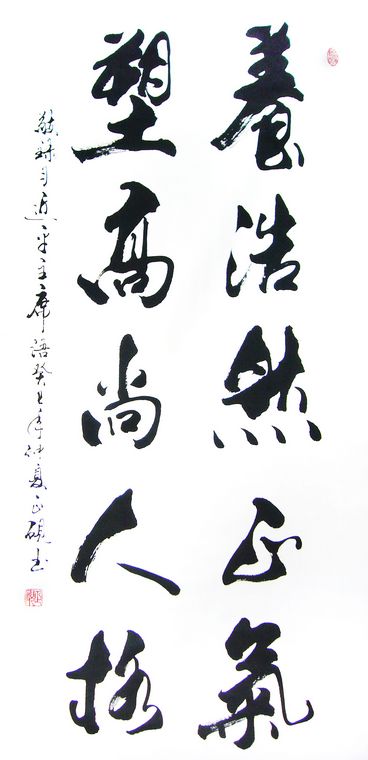 養浩然正氣
塑高尚人格
敬錄习近平主席語癸巳年仲夏正硯书